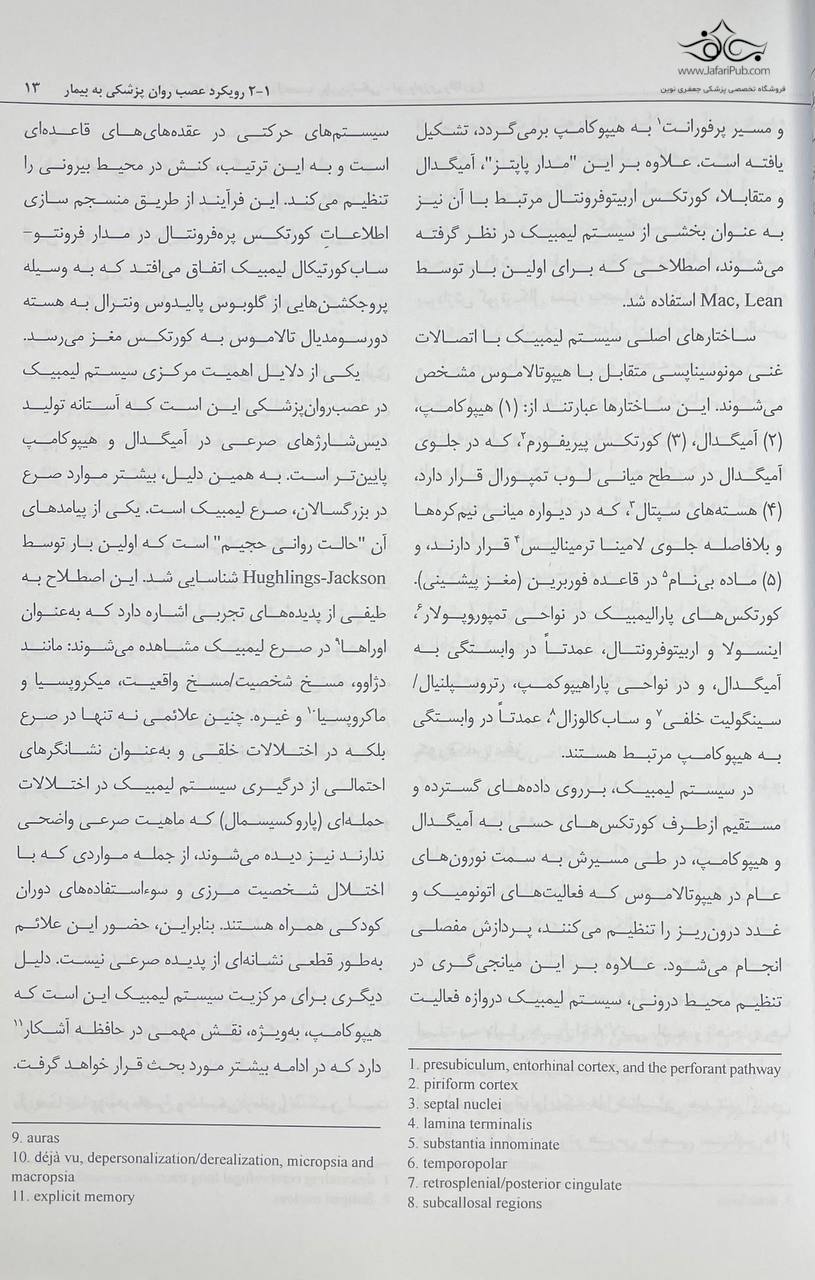 جعفری
www.JafariPub.com
فروشگاه تخصصی پزشکی جعفری نوین
۲-۱ رویکرد عصب روان پزشکی به بیمار ۱۳
و مسیر پرفورانت۱ به هیپوکامپ برمی‌گردد، تشکیل
یافته است. علاوه بر این "مدار پاپتز"، آمیگدال
و متقابلا، کورتکس اربیتوفرونتال مرتبط با آن نیز
به عنوان بخشی از سیستم لیمبیک در نظر گرفته
می‌شوند، اصطلاحی که برای اولین بار توسط
Mac, Lean استفاده شد.
ساختارهای اصلی سیستم لیمبیک با اتصالات
غنی مونوسیناپسی متقابل با هیپوتالاموس مشخص
می‌شوند. این ساختارها عبارتند از: (۱) هیپوکامپ،
(۲) آمیگدال، (۳) کورتکس پیریفورم۲، که در جلوی
آمیگدال در سطح میانی لوب تمپورال قرار دارد،
(۴) هسته‌های سپتال۳، که در دیواره میانی نیم‌کره‌ها
و بلافاصله جلوی لامینا ترمینالیس۴ قرار دارند، و
(۵) ماده بی‌نام۵ در قاعده فوربرین (مغز پیشینی).
کورتکس‌های پارالیمبیک در نواحی تمپوروپولار۶،
اینسولا و اربیتوفرونتال، عمدتاً در وابستگی به
آمیگدال، و در نواحی پاراهیپوکمپ، رتروسپلنیال/
سینگولیت خلفی۷ و ساب‌کالوزال۸، عمدتاً در وابستگی
به هیپوکامپ مرتبط هستند.
در سیستم لیمبیک، برروی داده‌های گسترده و
مستقیم ازطرف کورتکس‌های حسی به آمیگدال
و هیپوکامپ، در طی مسیرش به سمت نورون‌های
عام در هیپوتالاموس که فعالیت‌های اتونومیک و
غدد درون‌ریز را تنظیم می‌کنند، پردازش مفصلی
انجام می‌شود. علاوه بر این میانجی‌گری در
تنظیم محیط درونی، سیستم لیمبیک دروازه فعالیت
1. presubiculum, entorhinal cortex, and the perforant pathway
2. piriform cortex
3. septal nuclei
4. lamina terminalis
5. substantia innominate
6. temporopolar
7. retrosplenial/posterior cingulate
8. subcallosal regions
سیستم‌های حرکتی در عقده‌های‌های قاعده‌ای
است و به این ترتیب، کنش در محیط بیرونی را
تنظیم می‌کند. این فرآیند از طریق منسجم سازی
اطلاعات کورتکس پره‌فرونتال در مدار فرونتو-
ساب‌کورتیکال لیمبیک اتفاق می‌افتد که به وسیله
پروجکشن‌هایی از گلوبوس پالیدوس ونترال به هسته
دورسومدیال تالاموس به کورتکس مغز می‌رسد.
یکی از دلایل اهمیت مرکزی سیستم لیمبیک
در عصب‌روان‌پزشکی این است که آستانه تولید
دیس‌شارژهای صرعی در آمیگدال و هیپوکامپ
پایین‌تر است. به همین دلیل، بیشتر موارد صرع
در بزرگسالان، صرع لیمبیک است. یکی از پیامدهای
آن "حالت روانی حجیم" است که اولین بار توسط
Hughlings-Jackson شناسایی شد. این اصطلاح به
طیفی از پدیده‌های تجربی اشاره دارد که به‌عنوان
اوراها۹ در صرع لیمبیک مشاهده می‌شوند: مانند
دژاوو، مسخ شخصیت/مسخ واقعیت، میکروپسیا و
ماکروپسیا۱۰ و غیره. چنین علائمی نه تنها در صرع
بلکه در اختلالات خلقی و به‌عنوان نشانگرهای
احتمالی از درگیری سیستم لیمبیک در اختلالات
حمله‌ای (پاروکسیسمال) که ماهیت صرعی واضحی
ندارند نیز دیده می‌شوند، از جمله مواردی که با
اختلال شخصیت مرزی و سوءاستفاده‌های دوران
کودکی همراه هستند. بنابراین، حضور این علائم
به‌طور قطعی نشانه‌ای از پدیده صرعی نیست. دلیل
دیگری برای مرکزیت سیستم لیمبیک این است که
هیپوکامپ، به‌ویژه، نقش مهمی در حافظه آشکار۱۱
دارد که در ادامه بیشتر مورد بحث قرار خواهد گرفت.
9. auras
10. déjà vu, depersonalization/derealization, micropsia and
macropsia
11. explicit memory